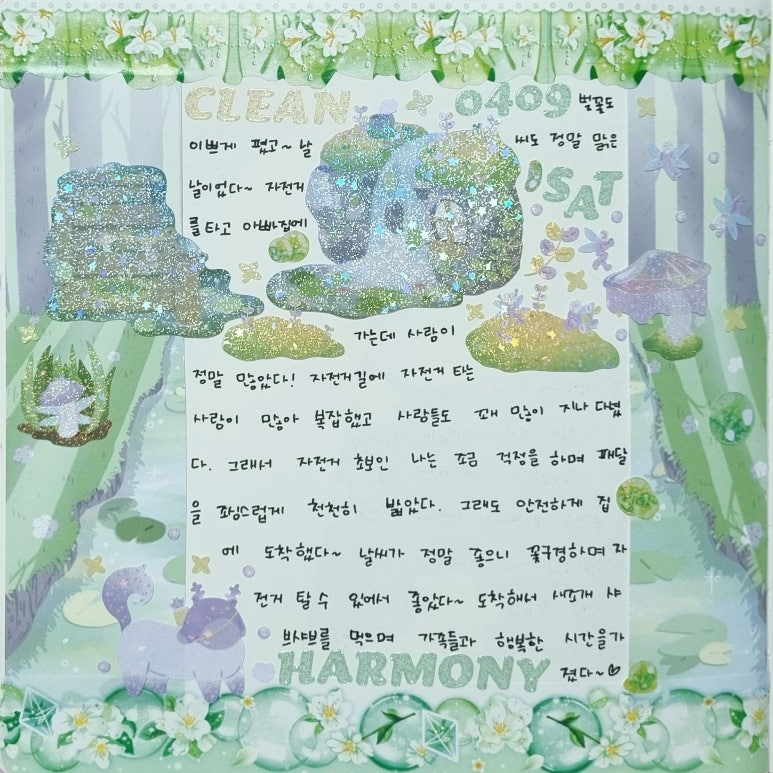 CLEAN 0409 벚꽃도
이쁘게 폈고~ 날씨도 정말 맑은
SAT
날이었다~ 자전거
를 타고 아빠집에
가는데 사람이
정말 많았다! 자전거길에 자전거 타는
사람이 많아 복잡했고 사람들도 꽤 많이 지나 다녔
다. 그래서 자전거 초보인 나는 조금 걱정을 하며 패달
을 조심스럽게 천천히 밟았다. 그래도 안전하게 집
에 도착했다~ 날씨가 정말 좋으니 꽃구경하며 자
전거 탈 수 있어서 좋았다~ 도착해서 새조개 샤
브샤브를 먹으며 가족들과 행복한 시간을 가
HARMONY 졌다~♡